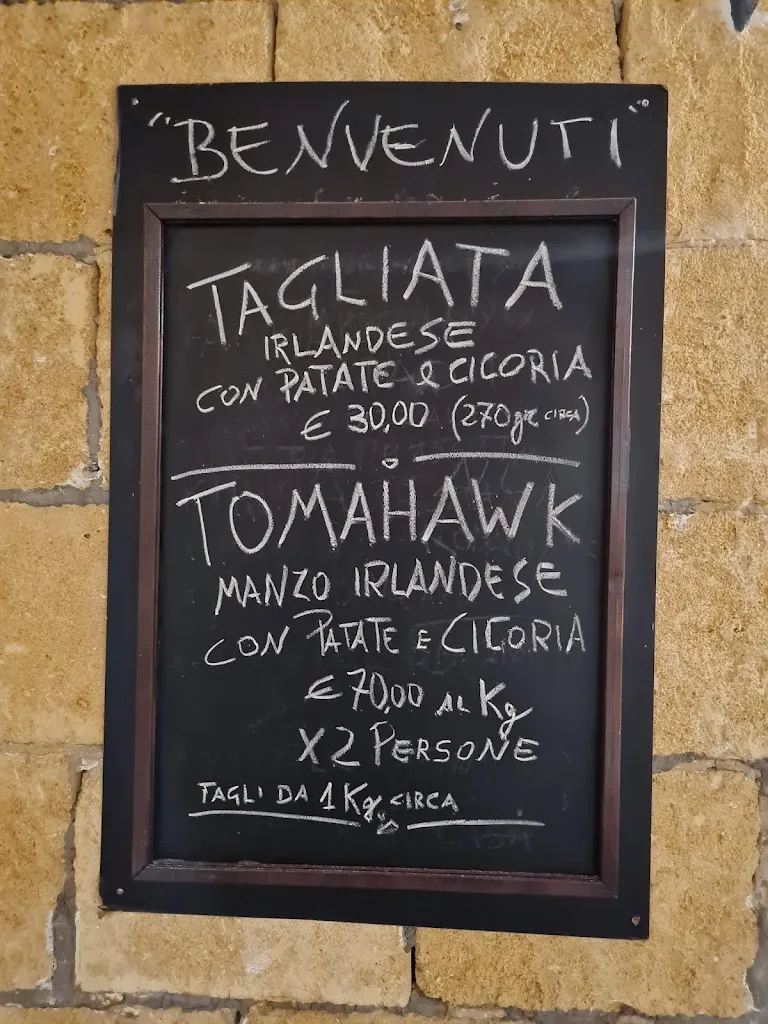 "BENVENUTI"
TAGLIATA
IRLANDESE
CON PATATE & CICORIA
€ 30,00 (270gr CIRCA)
TOMAHAWK
MANZO IRLANDESE
CON PATATE E CICORIA
€ 70,00 AL Kg
X2 PERSONE
TAGLI DA 1Kg CIRCA